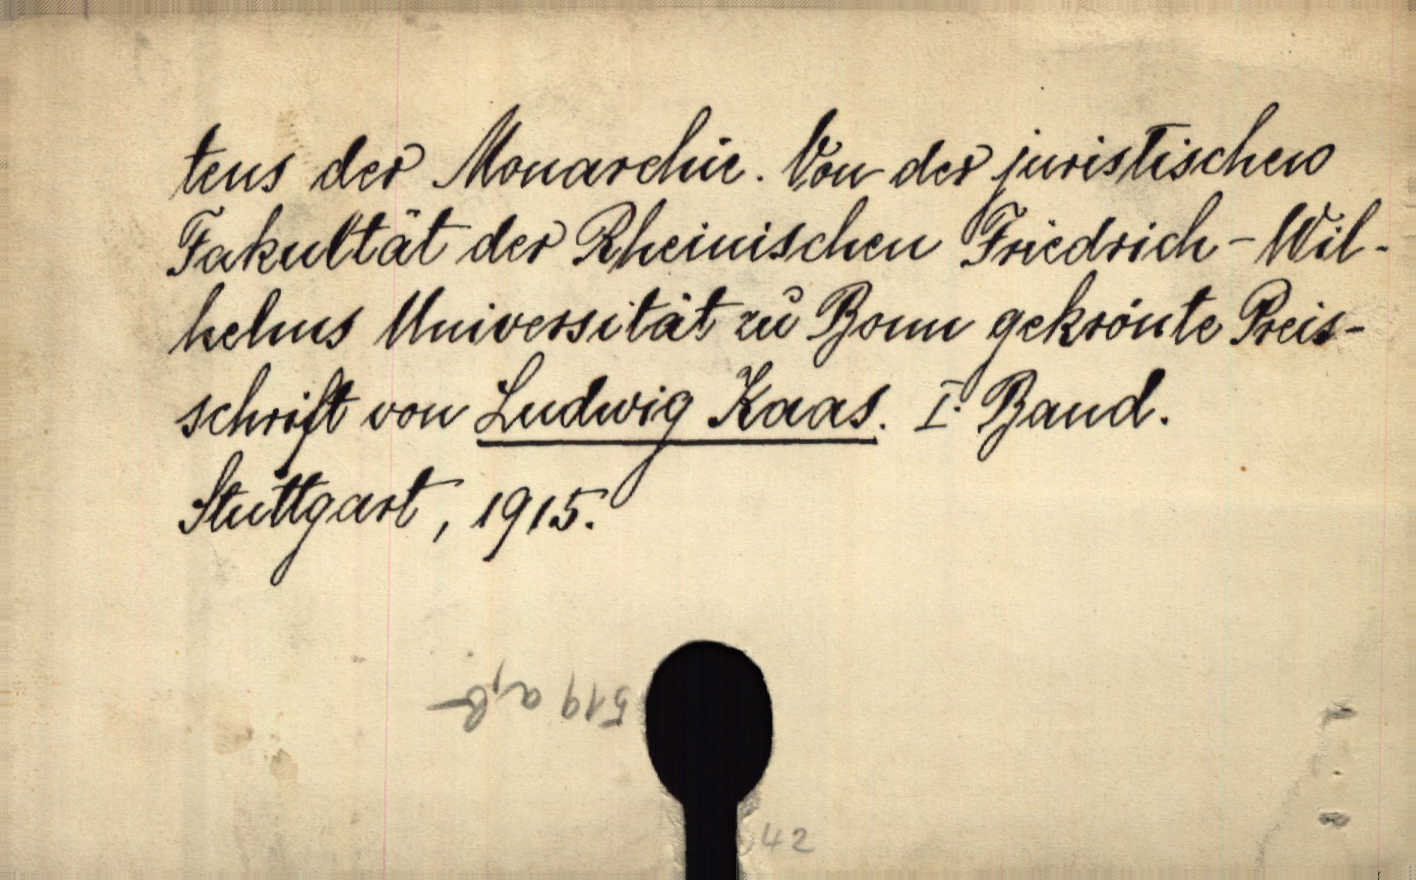 tens der Monarchie. Von der juristischen
Fakultät der Rheinischen Friedrich-Wil-
helms Universität zu Bonn gekrönte Preis-
schrift von Ludwig Kaas. I. Band.
Stuttgart, 1915.
519 a,b
42